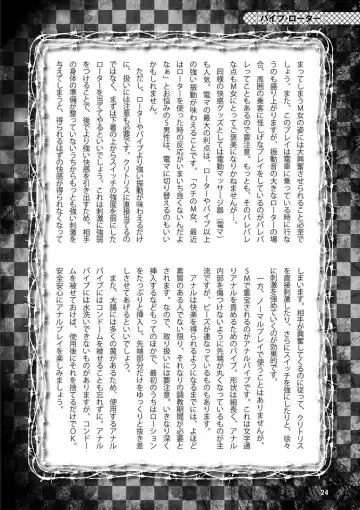 バイブ・ローター
まってしまうM女の姿には大興奮させられること必至で
しょう。また、このプレイは電車に乗っている時に行な
うのも盛り上がりますが、振動音の大きなローターの場
合、周囲の乗客に怪しげなプレイをしているのがバレバ
レってこともあるので要注意。もっとも、そのバレバレ
な点もM女にとってご褒美になりかねませんが…。
同様の快感グッズとしては電動マッサージ器(電マ)
も人気。電マの最大の利点は、ローターやバイブ以上に
強い振動が味わえることです。「ウチのM女、最近
はローターを使った時の反応がいまいち良くないんだよ
なぁ」とお悩みのS男性は、電マに切り替えるのもいい
かもしれません。
ただし、ローターやバイブより強い振動が味わえるだけ
に、扱いには注意も必要です。クリトリスに直接当てるの
ではなく、まずは下着の上からスイッチの強度を弱にした
ローターを当てるようにするといいでしょう。これは刺激に強弱
をつけることで、後でより強い快感を引き出すため。相手
の身体の準備が整っていないうちからもっとも強い刺激を
与えてしまうと、得られるはずの快感が得られなくなって
しまいます。相手が興奮してくるのに従って、クリトリス
を直接刺激したり、さらにスイッチを強にしたりと、徐々
に刺激を強めていくのが効果的です。
一方、ノーマルプレイで使うことはありませんが、
SMで重宝されるのがアナルバイブです。これは文字通
りアナルを責めるためのバイブ。形状は細長く、アナル
内部を傷つけないように先端が丸くなっているものが主
流ですが、ビーズが連なっているものもあります。
アナルは快楽を得られるようになるまでには、よほど
素質のある人でない限り、それなりの調教期間が必要と
されます。なので、取り扱いには要注意。いきなり深く
挿入するなどもってのほかで、最初のうちはローション
をたっぷりと挿し、先端部分だけをゆっくりと抜き差
しさせてあげるといいでしょう。
また、大腸には多くの菌があるため、使用するアナル
バイブにはコンドームを被せることも忘れずに。アナル
バイブには水洗いできないものがありますが、コンドー
ムを被せておけば、使用後にそれを捨てるだけでOK。
安全安心にアナルプレイを楽しみましょう。
24